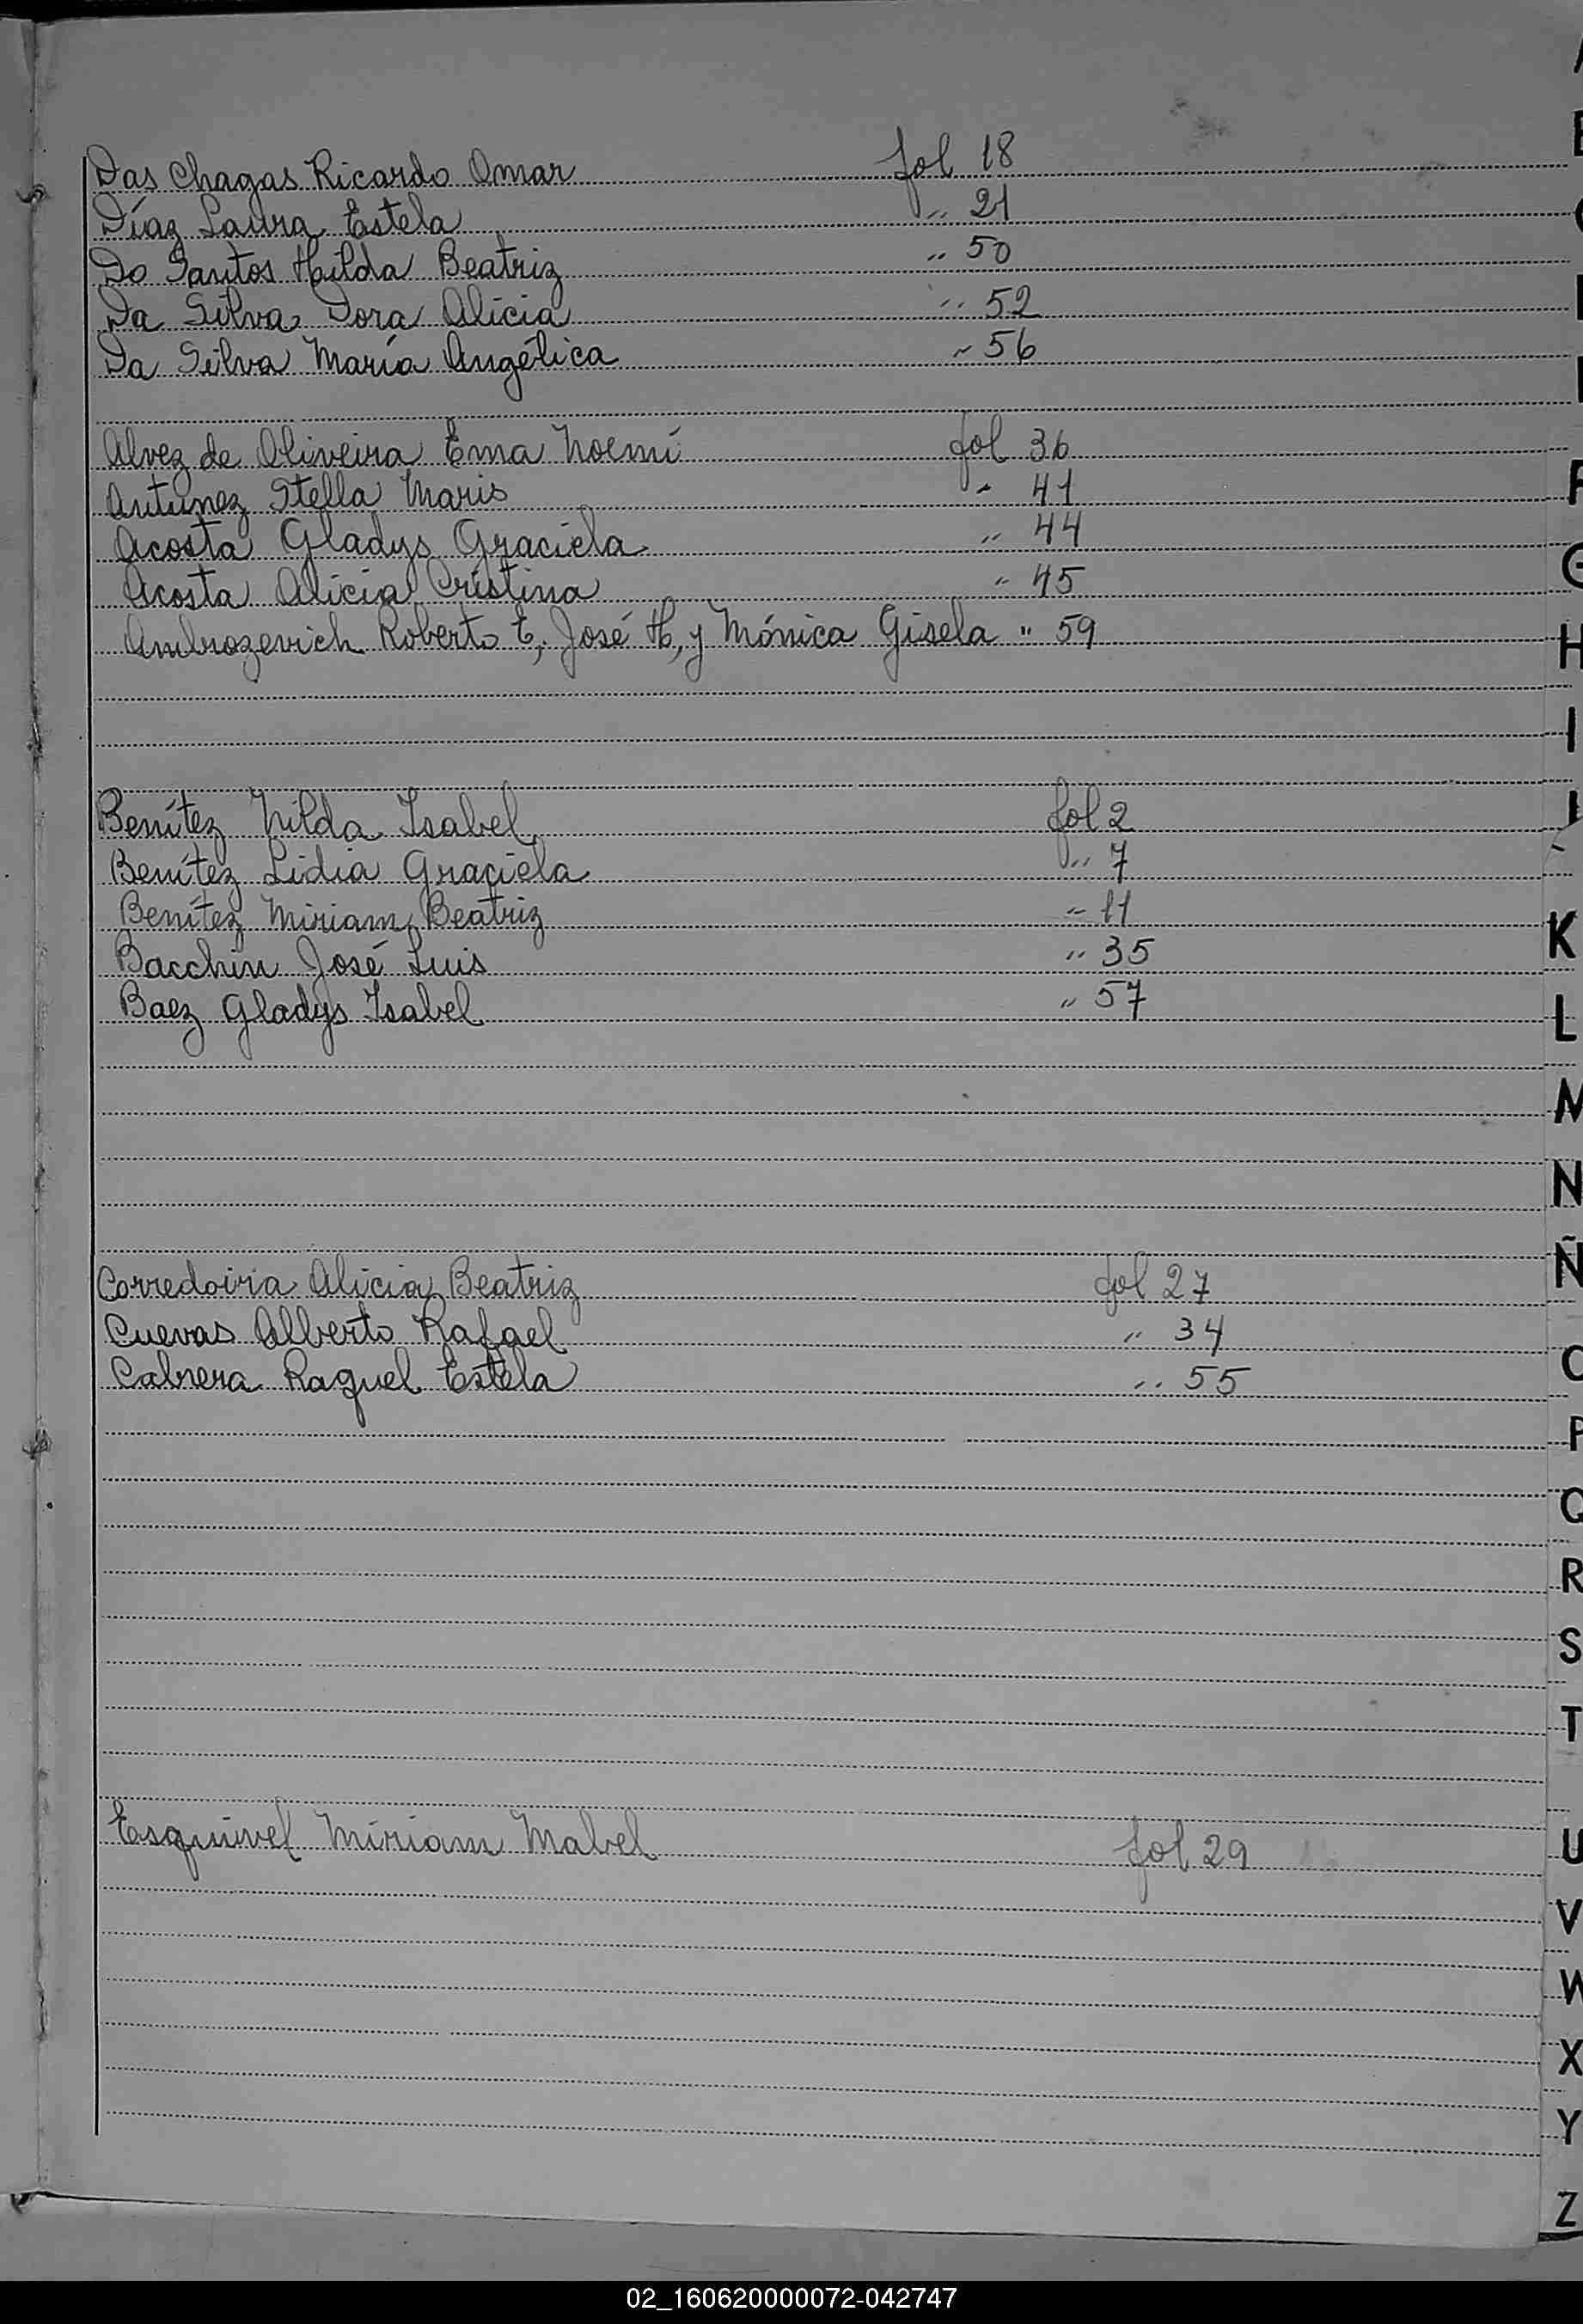 Das Chagas Ricardo Omar fol 18
Díaz Laura Estela " 21
Do Santos Hilda Beatriz " 50
Da Silva Dora Alicia " 52
Da Silva María Angélica " 56
Alvez de Oliveira Ema Noemí fol 36
Antunez Stella Maris " 41
Acosta Gladys Graciela " 44
Acosta Alicia Cristina " 45
Ambrozevich Roberto E, José H, y Mónica Gisela " 59
Benítez Nilda Isabel fol 2
Benítez Lidia Graciela " 7
Benítez Miriam Beatriz " 11
Bacchin José Luis " 35
Baez Gladys Isabel " 57
Corredoira Alicia Beatriz fol 27
Cuevas Alberto Rafael " 34
Cabrera Raquel Estela " 55
Esquivel Miriam Mabel fol 29
G
H
I
K
L
M
N
Ñ
O
P
Q
R
S
T
U
V
W
X
Y
Z
02_160620000072-042747